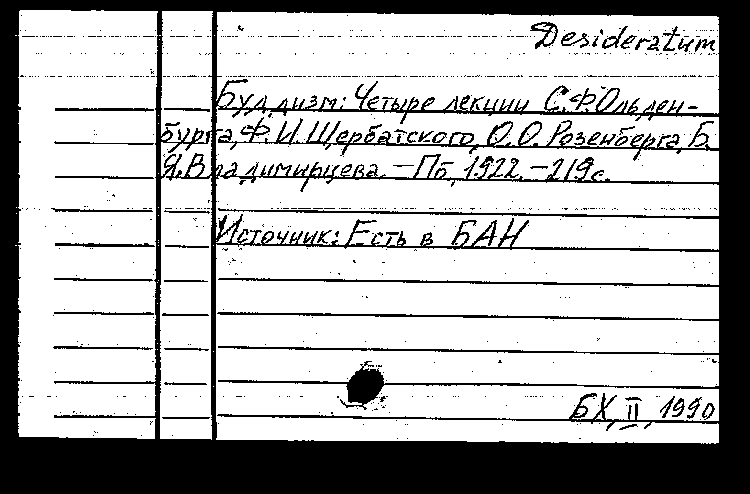 Desideratum
Буддизм: Четыре лекции С.Ф.Ольден-
бурга, Ф.И.Щербатского, О.О.Розенберга, Б.
Я.Владимирцева. – Пб, 1922. – 219с.
Источник: Есть в БАН
БХ, II, 1990